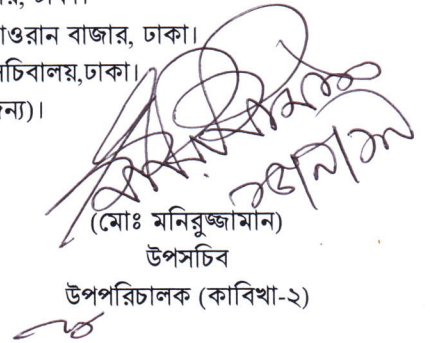 াওরান বাজার, ঢাকা।
সচিবালয়,ঢাকা।
ন্য)।
(মোঃ মনিরুজ্জামান)
উপসচিব
উপপরিচালক (কাবিখা-২)